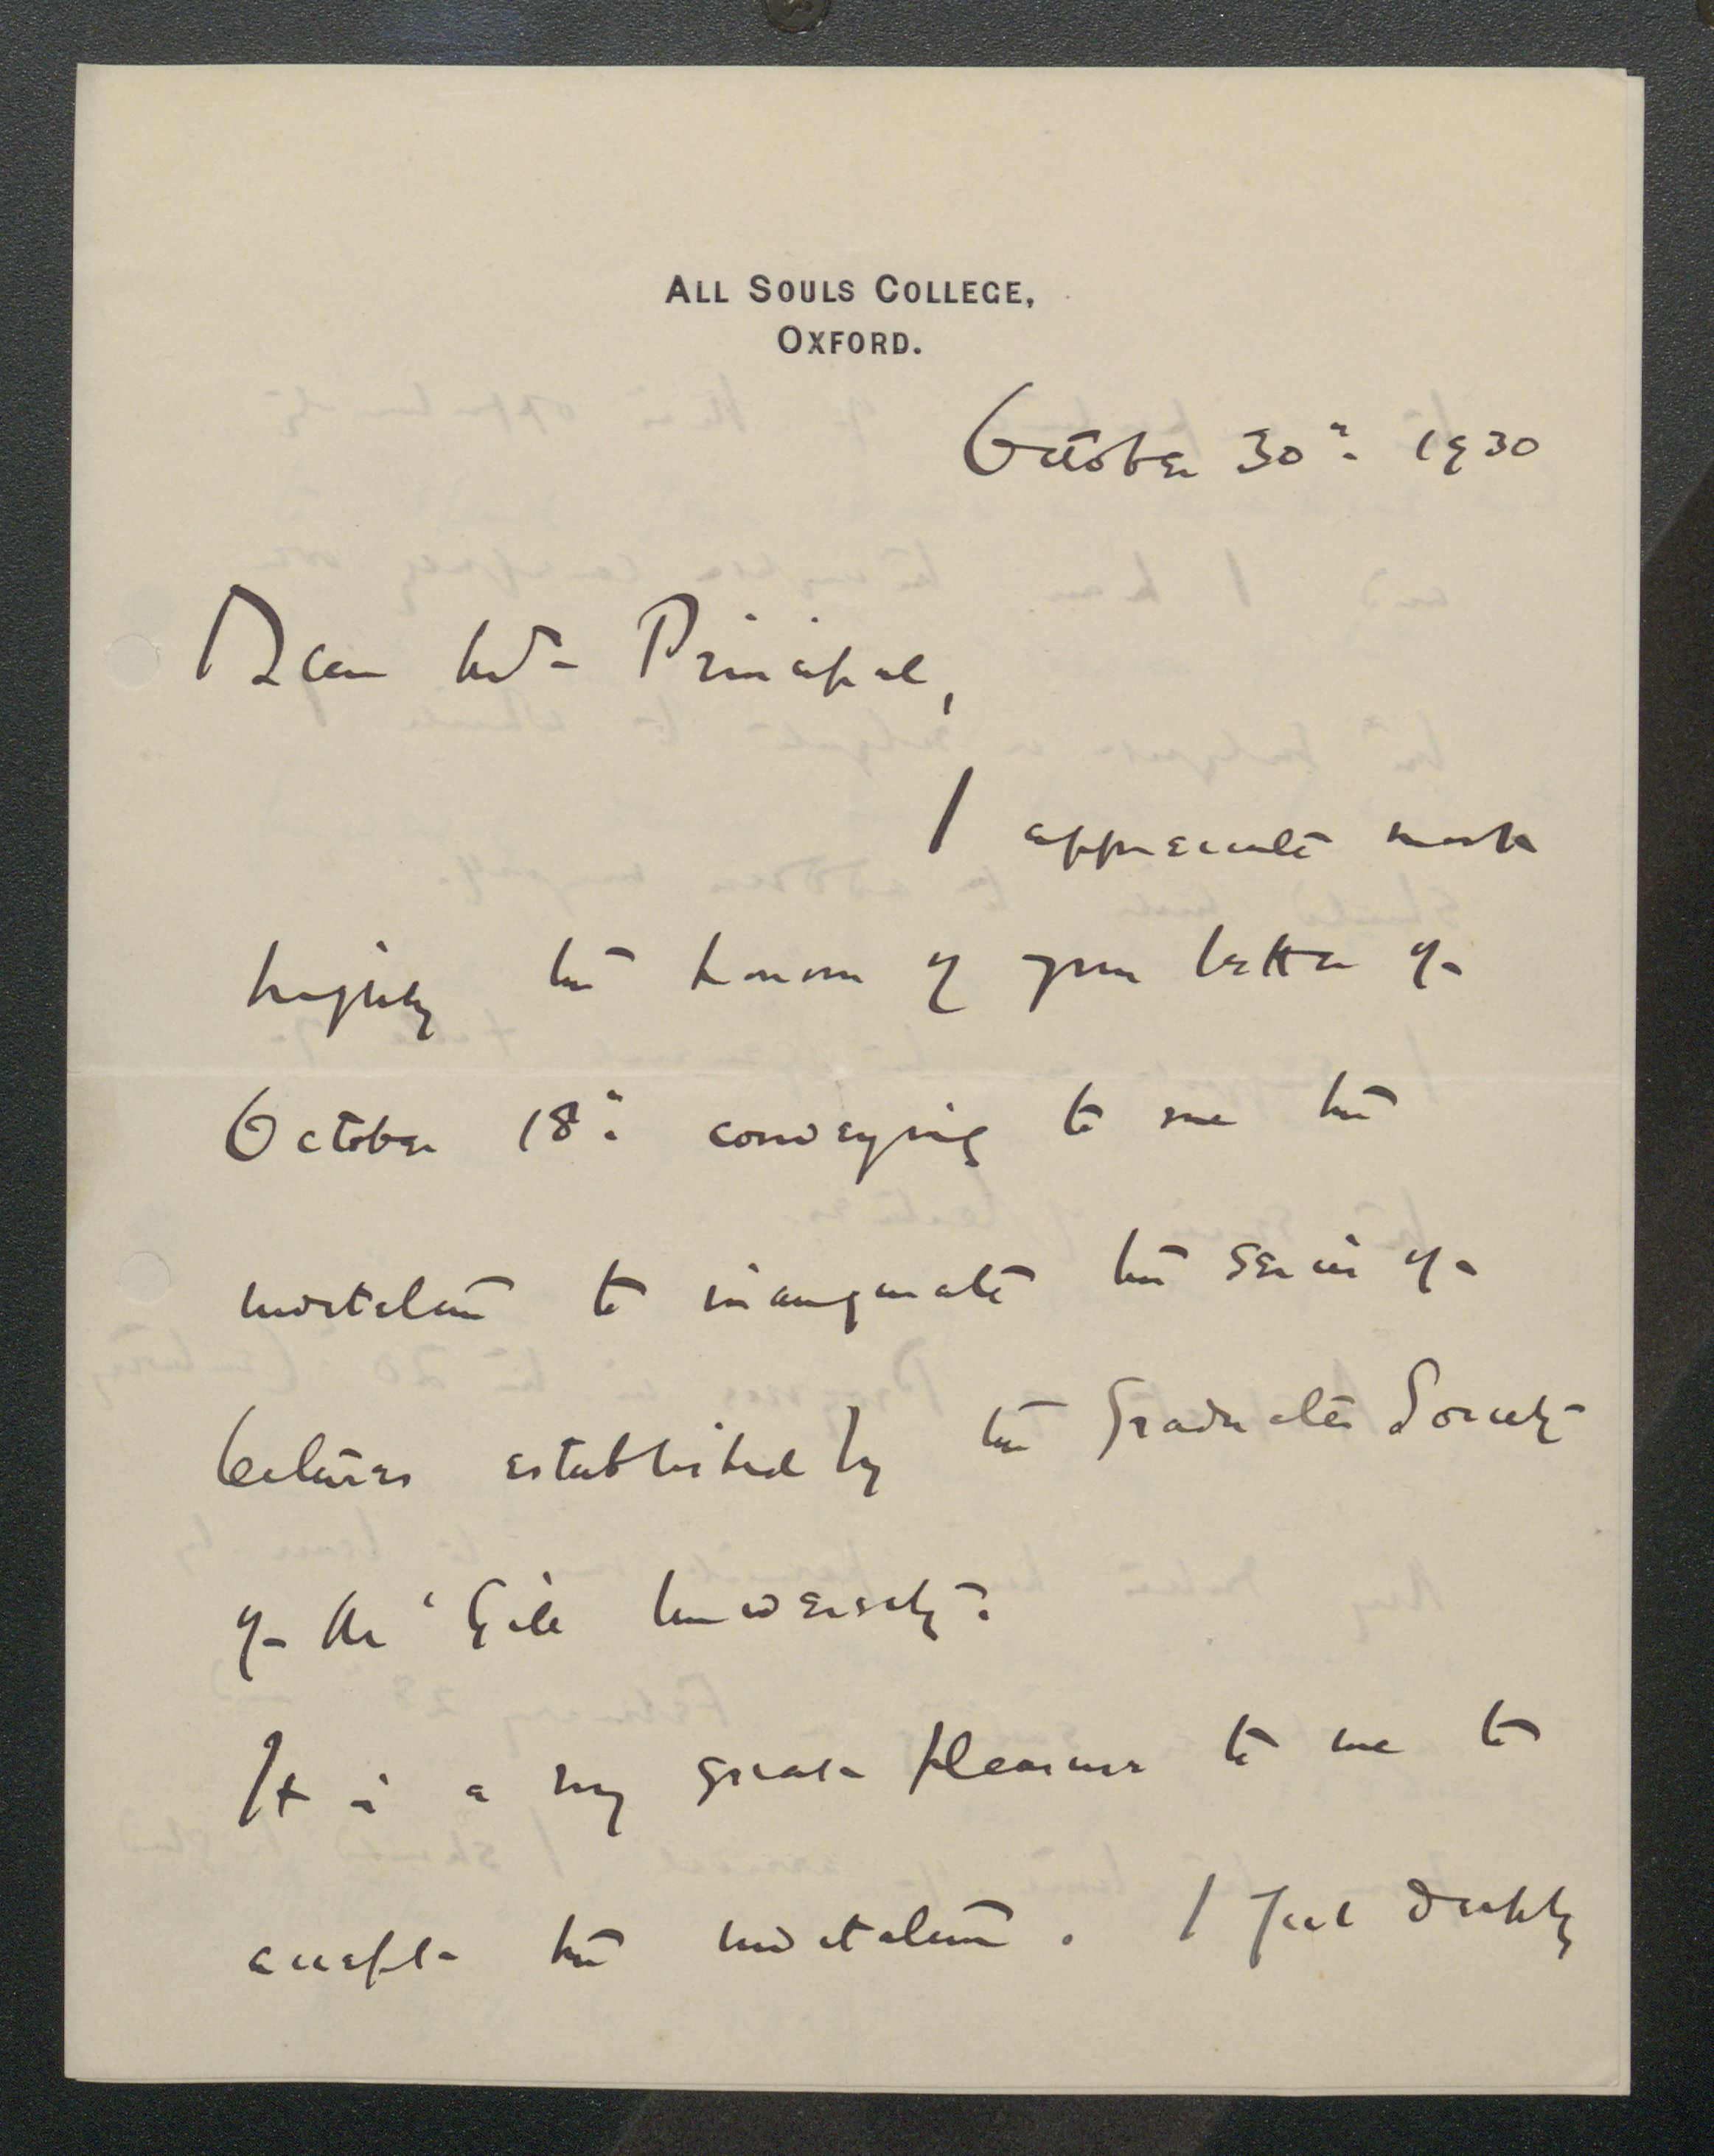 ALL SOULS COLLEGE,
OXFORD.
October 30th 1930
Dear Mr Principal,
I appreciate most
highly the honour of your letter of
October 18th conveying to me the
invitation to inaugurate the series of
lectures established by the Graduates Society
of McGill University.
It is a very great pleasure to me to
accept the invitation. I feel deeply